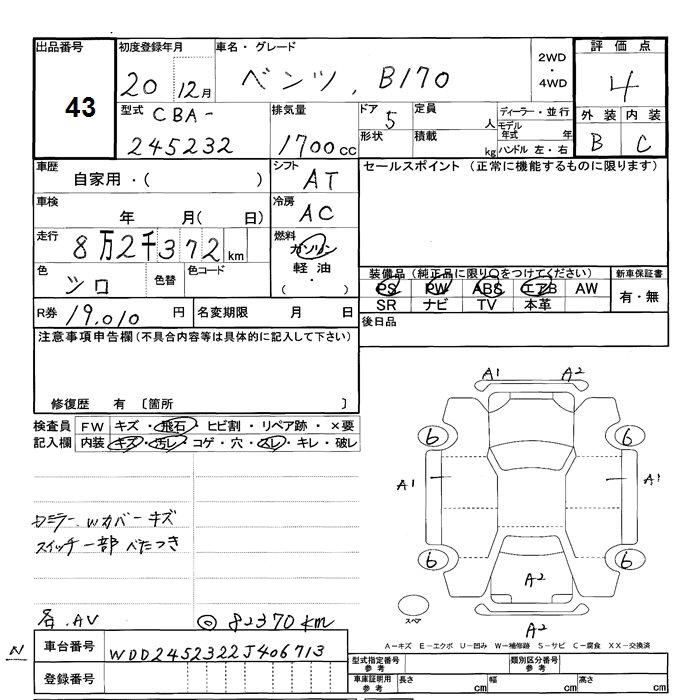 出品番号 初度登録年月 車名・グレード 2WD ・ 4WD 評価点
43 20 12月 ベンツ . B170 4
型式 CBA- 245232 排気量 1700cc ドア 5 定員 人 ディーラー・並行
形状 積載 kg モデル年式 年 ハンドル 左・右
外装 内装
B C
車歴 自家用・( ) シフト AT
セールスポイント (正常に機能するものに限ります)
車検 年 月( 日) 冷房 AC
走行 8万2千372km 燃料 ガソリン 軽油 ( ・ )
色 シロ 色替 色コード
装備品(純正品に限り○をつけてください) 新車保証書
PS PW ABS エアB AW 有・無
SR ナビ TV 本革
R券 19,010 円 名変期限 月 日
後日品
注意事項申告欄(不具合内容等は具体的に記入して下さい)
修復歴 有 〔箇所 〕
検査員 記入欄
FW キズ・飛石・ヒビ割・リペア跡・×要
内装 キズ・汚レ・コゲ・穴・スレ・キレ・破レ
A1 A2
6 6
A1 A1
6 6
A2
スペア
A2
ロミラー.Wカバーキズ
スイッチ一部べたつき
各.AV ◎82370km
A-キズ E-エクボ U-凹み W-補修跡 S-サビ C-腐食 XX-交換済
N 車台番号 WDD2452322J406713
登録番号
型式指定番号 参考 類別区分番号 参考
車庫証明用 参考 長さ cm 幅 cm 高さ cm